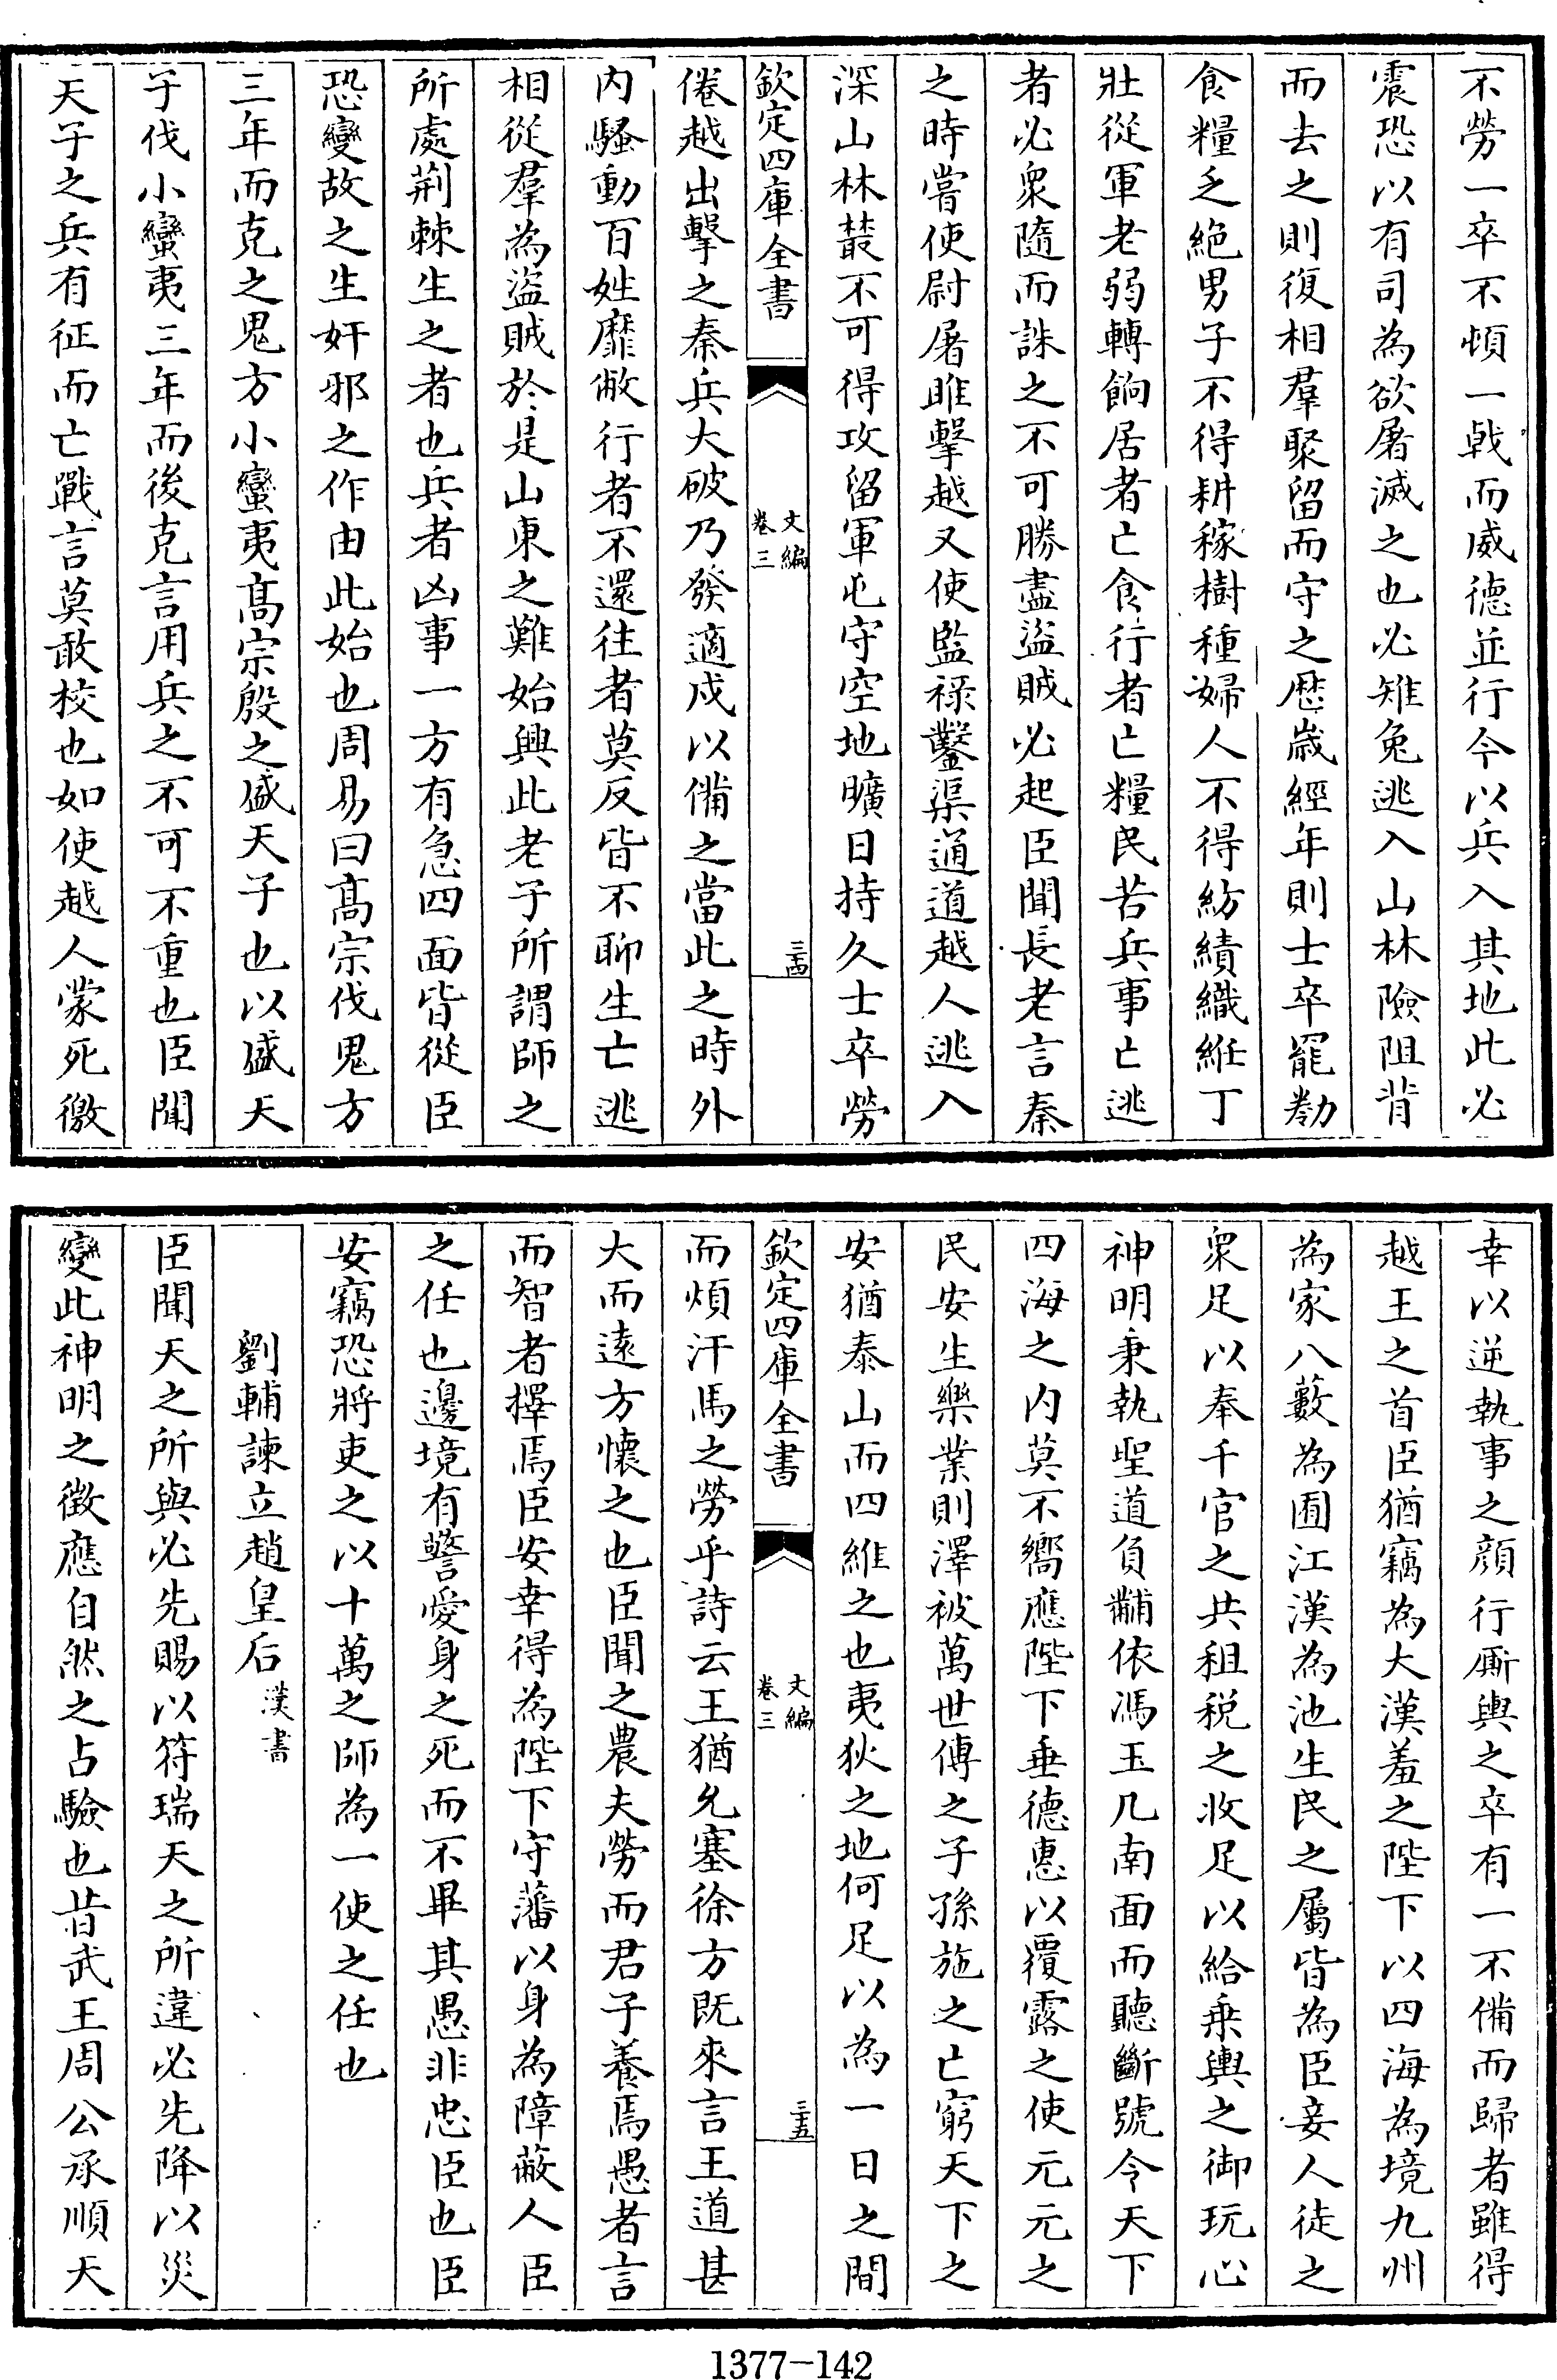 不勞一卒不頓一㦸而威德並行今以兵入其地此必
震恐以有司為欲屠滅之也必雉兔逃入山林險阻背
而去之則復相羣聚留而守之歴歳經年則士卒罷勌
食糧乏絶男子不得耕稼樹種婦人不得紡績織絍丁
壯從軍老弱轉餉居者亡食行者亡糧民苦兵事亡逃
者必衆隨而誅之不可勝盡盜賊必起臣聞長老言秦
之時嘗使尉屠睢擊越又使監禄鑿渠通道越人逃入
深山林叢不可得攻留軍屯守空地曠日持久士卒勞
欽定四庫全書
文編
卷三
三四
倦越出擊之秦兵大破乃發適戍以備之當此之時外
内騷動百姓靡敝行者不還往者莫反皆不聊生亡逃
相從羣為盜賊於是山東之難始興此老子所謂師之
所處荆棘生之者也兵者凶事一方有急四面皆從臣
恐變故之生奸邪之作由此始也周易曰髙宗伐鬼方
三年而克之鬼方小蠻夷髙宗殷之盛天子也以盛天
子伐小蠻夷三年而後克言用兵之不可不重也臣聞
天子之兵有征而亡戰言莫敢校也如使越人蒙死徼
幸以逆執事之顔行厮輿之卒有一不備而歸者雖得
越王之首臣猶竊為大漢羞之陛下以四海為境九州
為家八藪為囿江漢為池生民之屬皆為臣妾人徒之
衆足以奉千官之共租税之收足以給乗輿之御玩心
神明秉執聖道負黼依馮玉几南面而聽斷號令天下
四海之内莫不嚮應陛下垂德惠以覆露之使元元之
民安生樂業則澤被萬世傳之子孫施之亡窮天下之
安猶泰山而四維之也夷狄之地何足以為一日之間
欽定四庫全書
文編
卷三
三五
而煩汗馬之勞乎詩云王猶允塞徐方既來言王道甚
大而逺方懷之也臣聞之農夫勞而君子養焉愚者言
而智者擇焉臣安幸得為陛下守藩以身為障蔽人臣
之任也邊境有警愛身之死而不畢其愚非忠臣也臣
安竊恐將吏之以十萬之師為一使之任也
劉輔諫立趙皇后漢書
臣聞天之所與必先賜以符瑞天之所違必先降以災
變此神明之徴應自然之占驗也昔武王周公承順天
1377-142